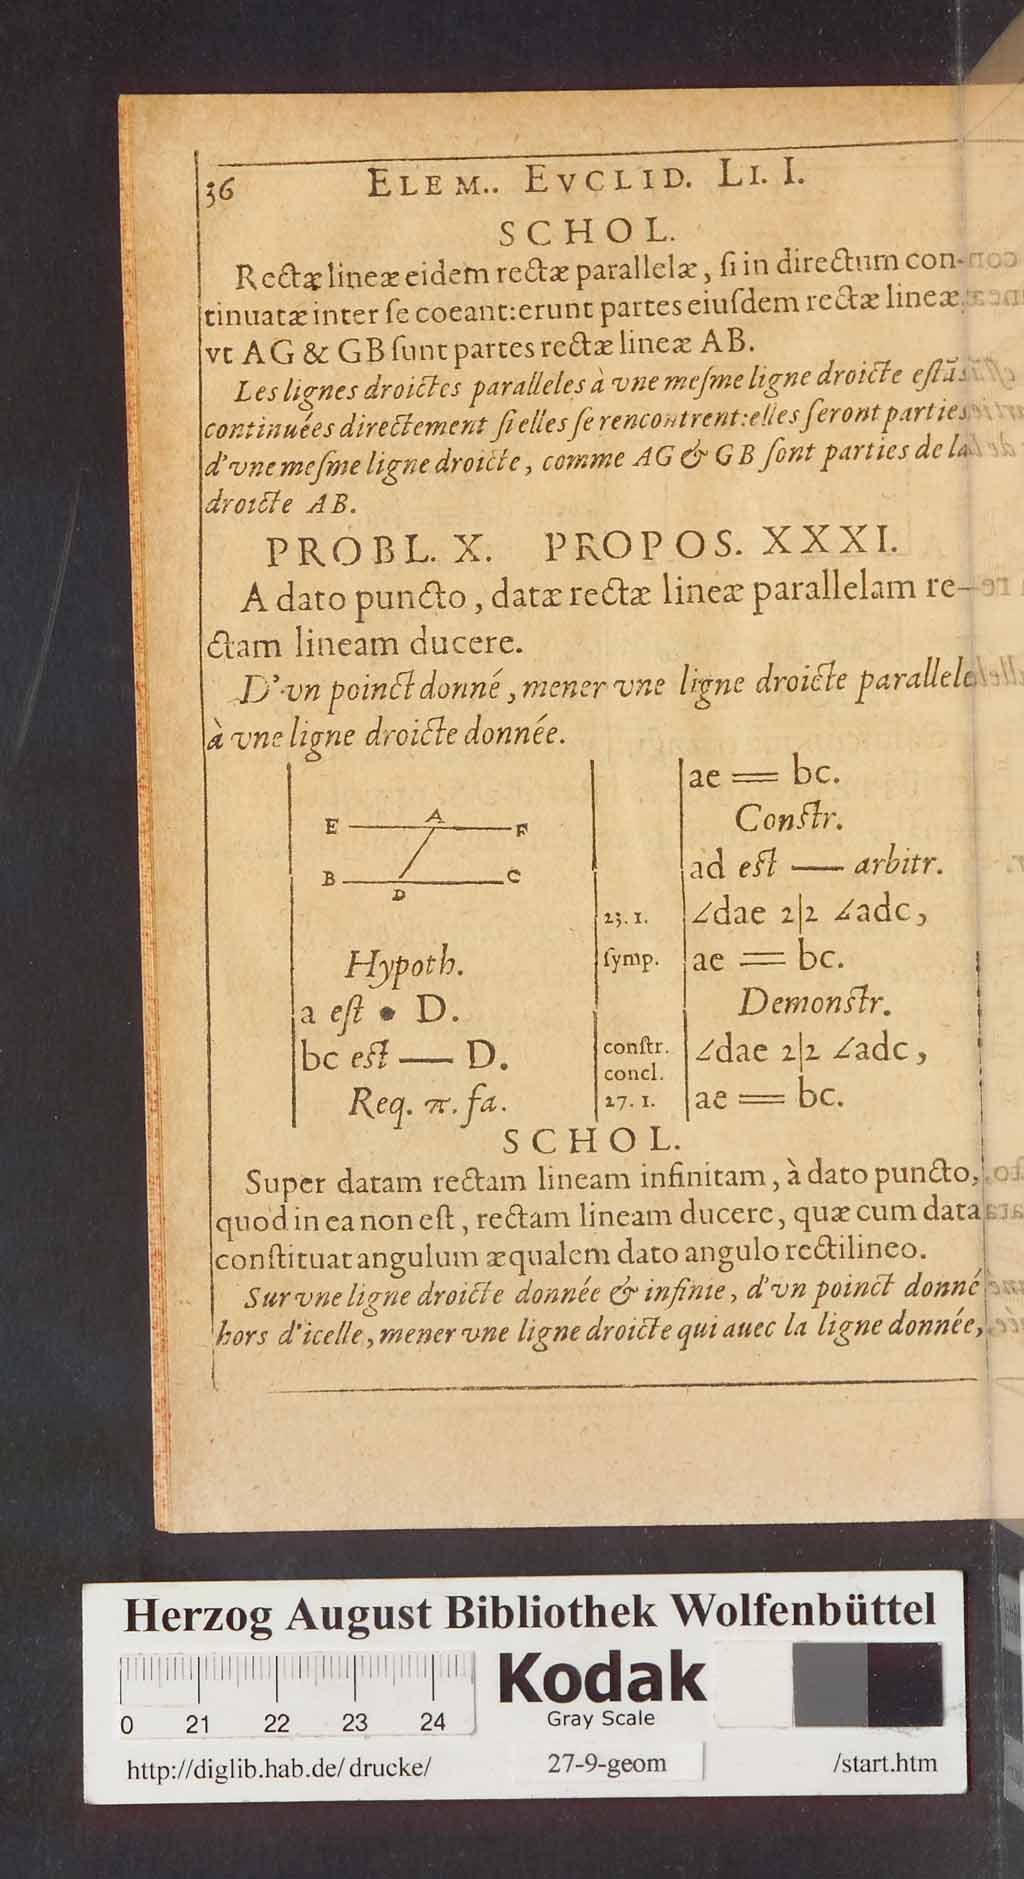 36 ELEM.. EVCLID. LI. I.
SCHOL.
Rectæ lineæ eidem rectæ parallelæ, ſi in directum con-
tinuatæ inter ſe coeant: erunt partes eiuſdem rectæ lineæ,
vt AG & GB ſunt partes rectæ lineæ AB.
Les lignes droictes paralleles à vne meſme ligne droicte eſtãs
continuées directement ſi elles ſe rencontrent: elles ſeront parties
d'vne meſme ligne droicte, comme AG & GB ſont parties de la
droicte AB.
PROBL. X. PROPOS. XXXI.
A dato puncto, datæ rectæ lineæ parallelam re-
ctam lineam ducere.
D'vn poinct donné, mener vne ligne droicte parallele
à vne ligne droicte donnée.
E A F
B D C
Hypoth.
a eſt • D.
bc eſt — D.
Req. π. fa.
ae = bc.
Conſtr.
ad eſt — arbitr.
23. 1. ∠dae 2|2 ∠adc,
ſymp. ae = bc.
Demonſtr.
conſtr. ∠dae 2|2 ∠adc,
concl.
27. 1. ae = bc.
SCHOL.
Super datam rectam lineam infinitam, à dato puncto,
quod in ea non eſt, rectam lineam ducere, quæ cum data
conſtituat angulum æqualem dato angulo rectilineo.
Sur vne ligne droicte donnée & infinie, d'vn poinct donné
hors d'icelle, mener vne ligne droicte qui auec la ligne donnée,
Herzog August Bibliothek Wolfenbüttel
0 21 22 23 24
Kodak
Gray Scale
http://diglib.hab.de/drucke/ 27-9-geom /start.htm